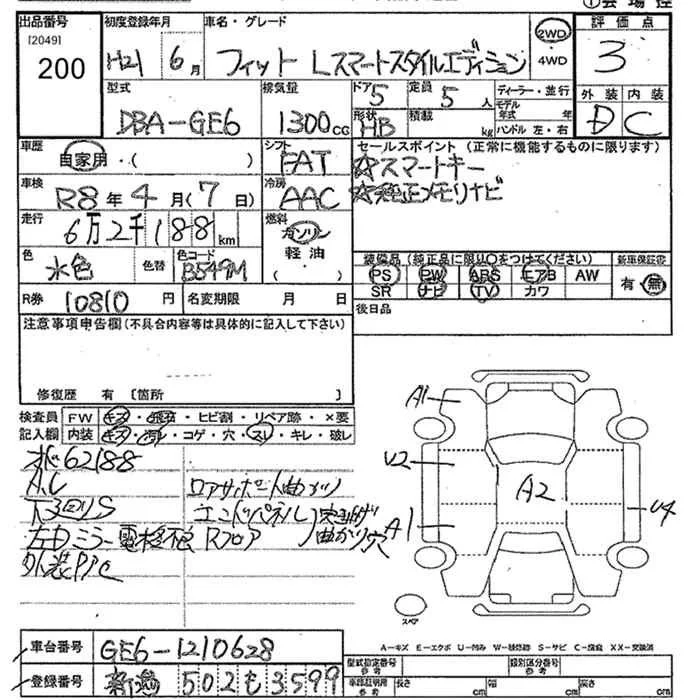 ①会場控
出品番号 初度登録年月 車名・グレード 評価点
[2049]
200 H21 6月 フィット Lスマートスタイルエディション 2WD ・4WD 3
型式 排気量 ドア 定員 ディーラー・並行 外装 内装
DBA-GE6 1300CC 5 5人 モデル年式 年式 D C
形状 HB 積載 kg ハンドル 左・右
車歴 自家用・( ) シフト FAT セールスポイント (正常に機能するものに限ります)
☆スマートキー
車検 R8年4月(7日) 冷房 AAC ☆純正メモリナビ
走行 6万2千188km 燃料 ガソリン
軽油
( )
色 水色 色替 色コード B549M 装備品(純正品に限り○をつけてください) 新車保証書
PS PW ABS エアB AW 有・無
SR ナビ TV カワ
R券 10810円 名変期限 月 日 後日品
注意事項申告欄(不具合内容等は具体的に記入して下さい)
修復歴 有 [箇所 ]
検査員 FW キズ・飛石・ヒビ割・リペア跡・×要
記入欄 内装 キズ・汚レ・コゲ・穴・スレ・キレ・破レ
A1
62188
A.C ロアサポート曲がり U2 A2
下回りS エンドパネル 突上げ U4
左Dミラー電格不良 Rフロア 曲がり 穴 A1
外装PPC
スペア
車台番号 GE6-1210628 A-キズ E-エクボ U-凹み W-修理跡 S-サビ C-腐蝕 XX-交換済
型式指定番号 参考 類別区分番号 参考
登録番号 新潟 502 も 3599 車体証明用 参考 長さ cm 幅 cm 高さ cm